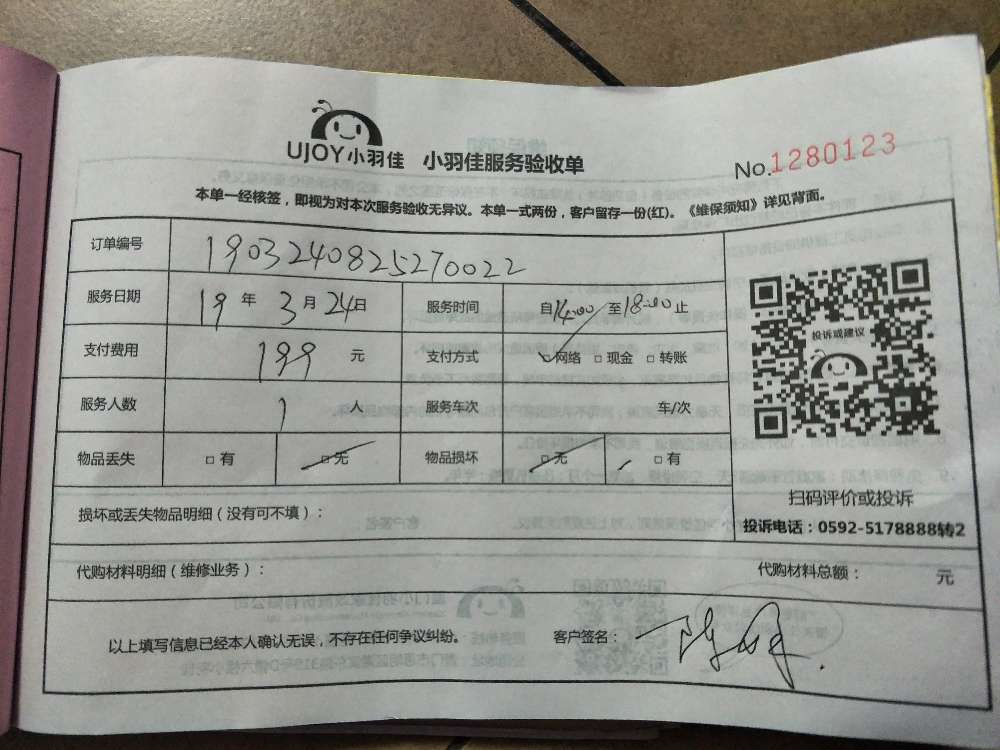 UJOY小羽佳 小羽佳服务验收单
No.1280123
本单一经核签，即视为对本次服务验收无异议。本单一式两份，客户留存一份(红)。《维保须知》详见背面。
订单编号 1903240825270022
服务日期 19 年 3 月 24 日 服务时间 自14:00 至18:00 止
支付费用 199 元 支付方式 ☑网络 □现金 □转账
服务人数 1 人 服务车次 车/次
物品丢失 □有 ☑无 物品损坏 ☑无 □有
投诉或建议
扫码评价或投诉
投诉电话：0592-5178888转2
损坏或丢失物品明细（没有可不填）：
代购材料明细（维修业务）： 代购材料总额： 元
以上填写信息已经本人确认无误，不存在任何争议纠纷。 客户签名：